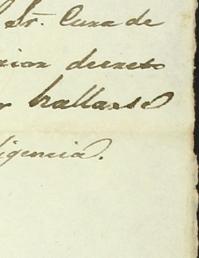 Sr. Cura de
rior decreto
r hallarse
ligencia.